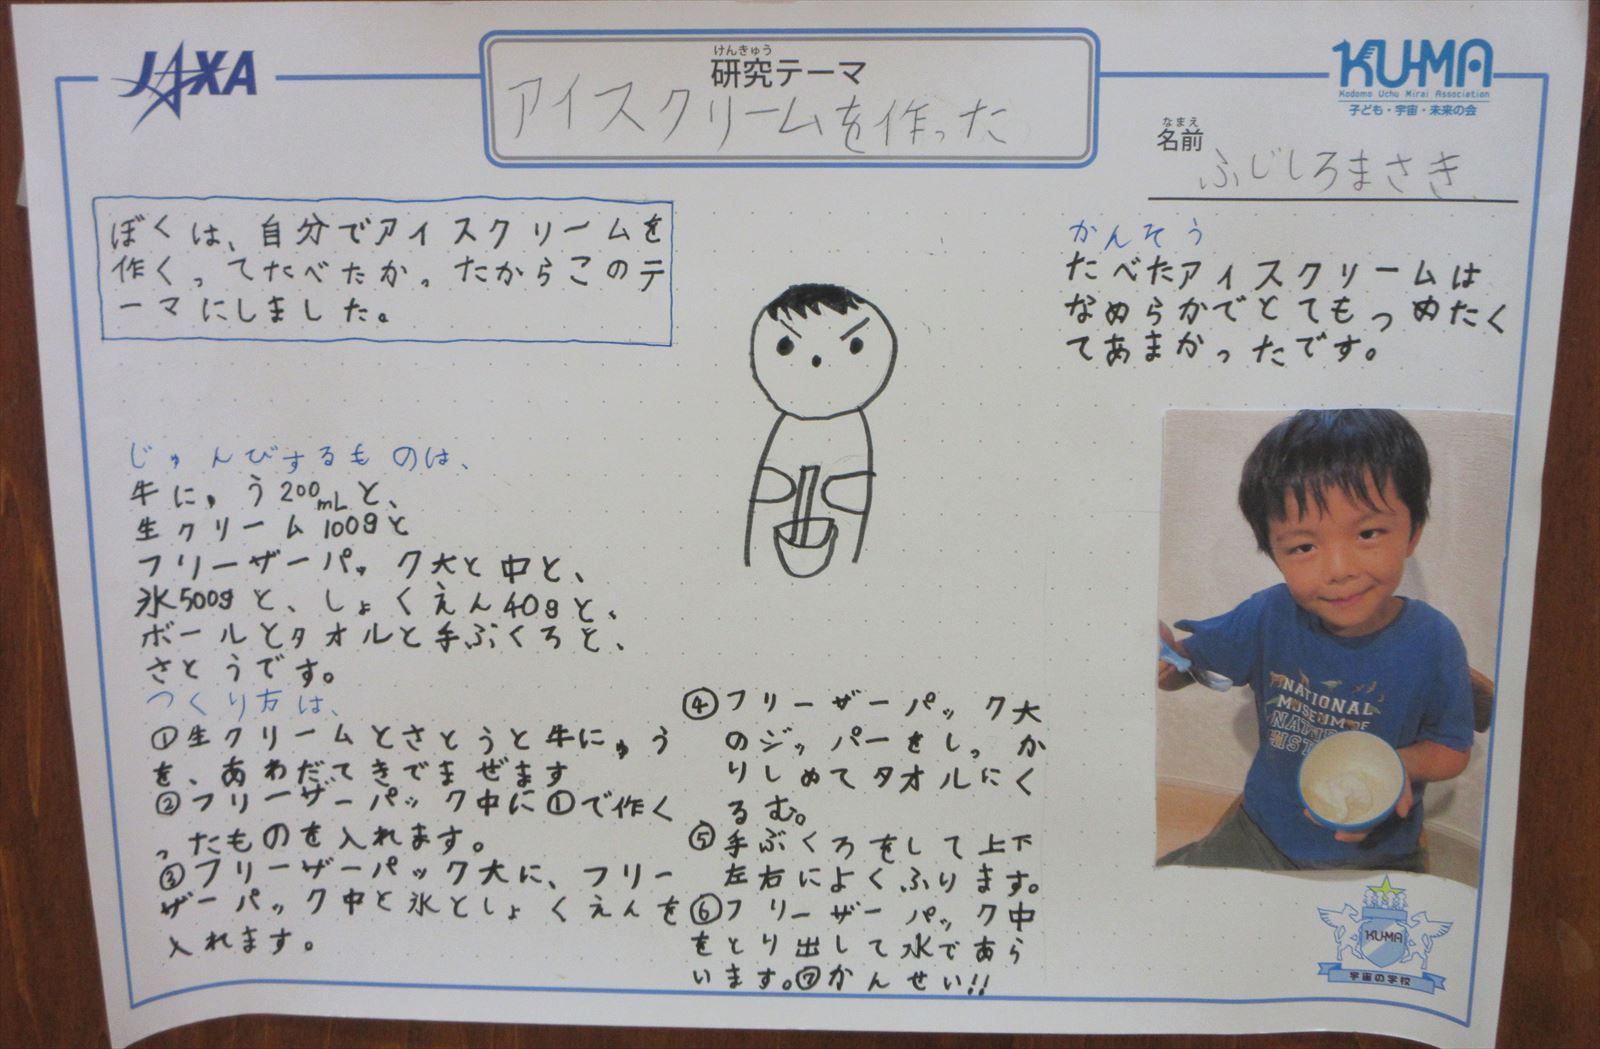 JAXA
けんきゅう
研究テーマ
アイスクリームを作った
KU-MA
Kodomo Uchu Mirai Association
子ども・宇宙・未来の会
なまえ
名前
ふじしろまさき
ぼくは、自分でアイスクリームを
作くってたべたかったからこのテ
ーマにしました。
じゅんびするものは、
牛にゅう200mLと、
生クリーム100gと
フリーザーパック大と中と、
氷500gと、しょくえん40gと、
ボールとタオルと手ぶくろと、
さとうです。
つくり方は、
①生クリームとさとうと牛にゅう
を、あわだてきでまぜます
②フリーザーパック中に①で作く
ったものを入れます。
③フリーザーパック大に、フリー
ザーパック中と氷としょくえんを
入れます。
④フリーザーパック大
のジッパーをしっか
りしめてタオルにく
るむ。
⑤手ぶくろをして上下
左右によくふります。
⑥フリーザーパック中
をとり出して水であら
います。⑦かんせい!!
かんそう
たべたアイスクリームは
なめらかでとてもつめたく
てあまかったです。
NATIONAL
MUSEUM OF
KU-MA
宇宙の学校